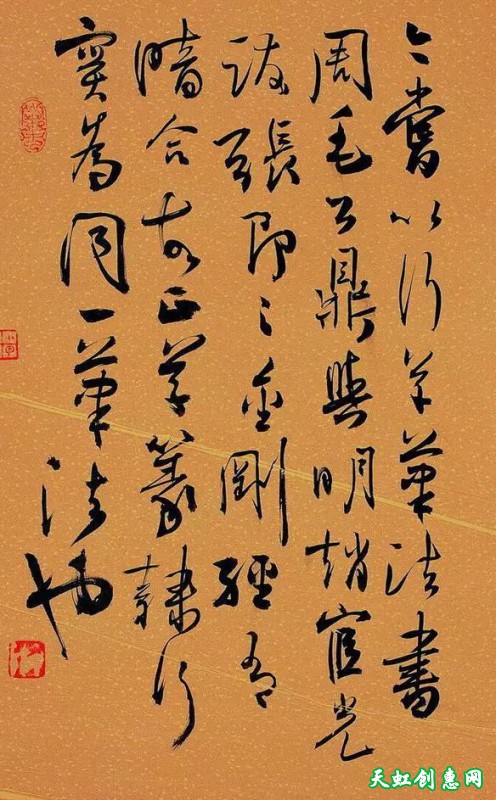 余嘗以行草筆法書
周毛公鼎與明趙宦光
跋張即之金剛經有
暗合正草篆隸行
實為同一筆法也
天虹创惠网